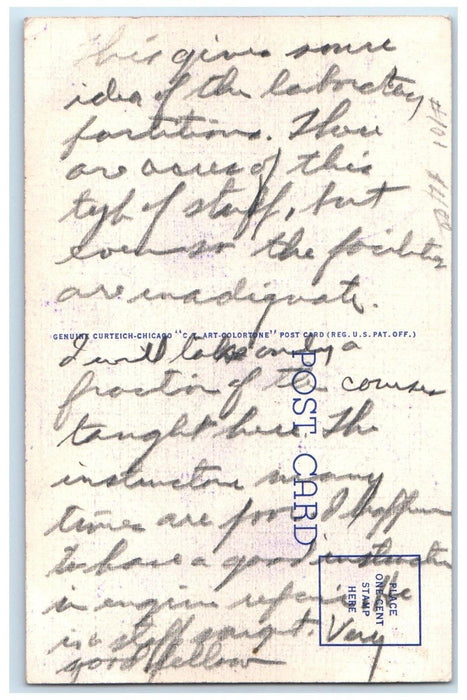 This gives some
idea of the laboratory
partitions. There
are acres of this
type of stuff, but
even so the facilities
are inadiquate.
GENUINE CURTEICH-CHICAGO "C.T. ART-COLORTONE" POST CARD (REG. U.S. PAT. OFF.)
I will take only a
fraction of the courses
taught here. The
instructors many
times are poor. I happen
to have a good instructor
in engine
is a staff sergt. Very
good fellow
POST CARD
PLACE
ONE CENT
STAMP
HERE